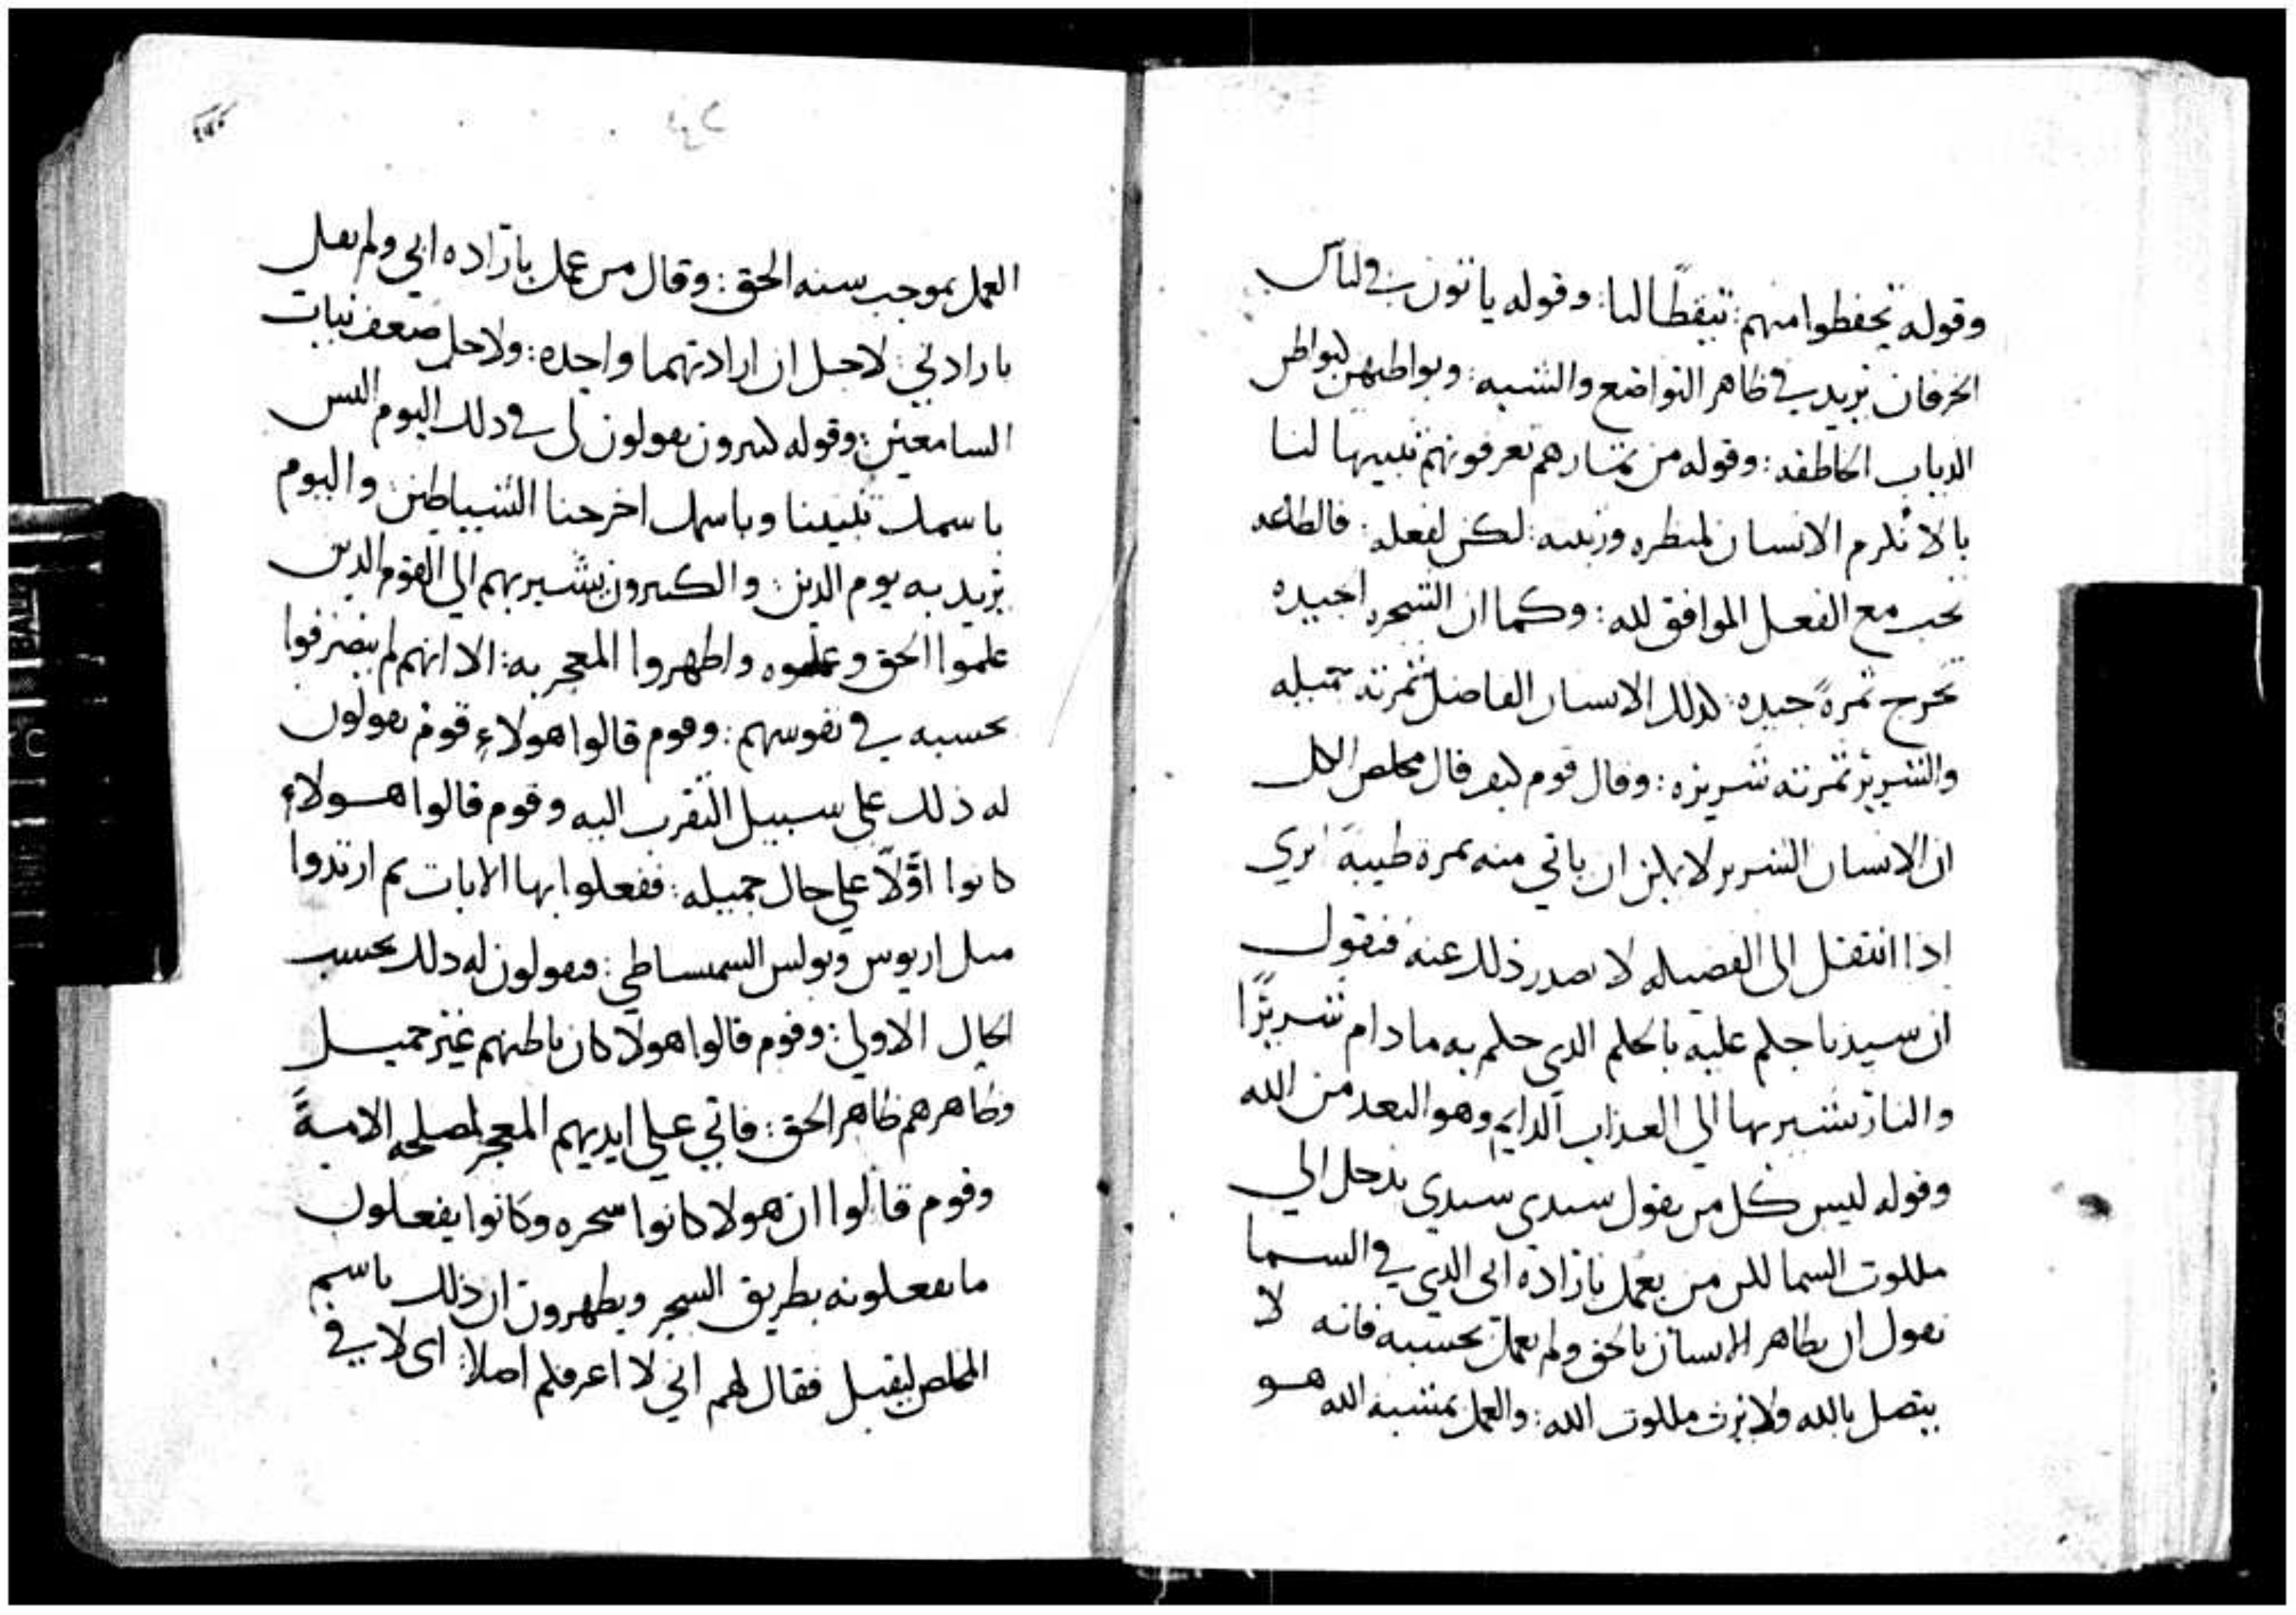 وقوله تحفظوا منهم: تيقظًا لنا: وقوله ياتون في لباس
الخرفان يريد في ظاهر التواضع والشبه: وبواطنهن كبواطن
الدياب الخاطفه: وقوله من ثمارهم تعرفونهم تنبيهًا لنا
بالا نكرم الانسان لمنظره وزيه: لكن لفعله: فالطاعه
تجب مع الفعل الموافق لله: وكما ان الشجره الجيده
تخرج ثمرةً جيده: كذلك الانسان الفاضل ثمرته جميله
والشرير ثمرته شريره: وقال قوم كيف قال مخلص الكل
ان الانسان الشرير لا يمكن ان ياتي منه ثمرة طيبة اترى
اذا انتقل الى الفضيله لا يصدر ذلك عنه فنقول
ان سيدنا حكم عليه بالحكم الدي حكم به ما دام شريرًا
والنار يشير بها الي العذاب الدايم وهو البعد من الله
وقوله ليس كل من يقول سيدي سيدي يدخل الي
ملكوت السما لكن من يعمل بارادة ابي الدي في السما
يقول ان تظاهر الانسان بالحق ولم يعمل بحسبه فانه لا
يتصل بالله ولا يرث ملكوت الله: والعمل بمشيه الله هو
العمل بموجب سنه الحق: وقال من عمل بارادة ابي ولم يقل
بارادتي: لاجل ان ارادتهما واحده: ولاجل ضعف نيات
السامعين: وقوله كثيرون يقولون لي في دلك اليوم اليس
باسمك تنبينا وباسمك اخرجنا الشياطين: واليوم
يريد به يوم الدين: والكثيرون يشير بهم الي القوم الدين
علموا الحق وعملوه واظهروا المعجز به: الا انهم لم يتصرفوا
بحسبه في نفوسهم: وقوم قالوا هولاءِ قوم يقولون
له ذلك علي سبيل التقرب اليه وقوم قالوا هولاءِ
كانوا اوّلًا علي حال جميله: ففعلوا بها الايات ثم ارتدوا
مثل اريوس وبولس السمساطي: فيقولون له دلك بحسب
الحال الاولي: وقوم قالوا هولا كان باطنهم غير جميل
وظاهرهم ظاهر الحق: فاتي علي ايديهم المعجز لمصلحه الامةً
وقوم قالوا ان هولا كانوا سحره وكانوا يفعلون
ما يفعلونه بطريق السحر ويظهرون ان ذلك باسم
المخلص ليقبل فقال لهم اني لا اعرفكم اصلا: اي لا في